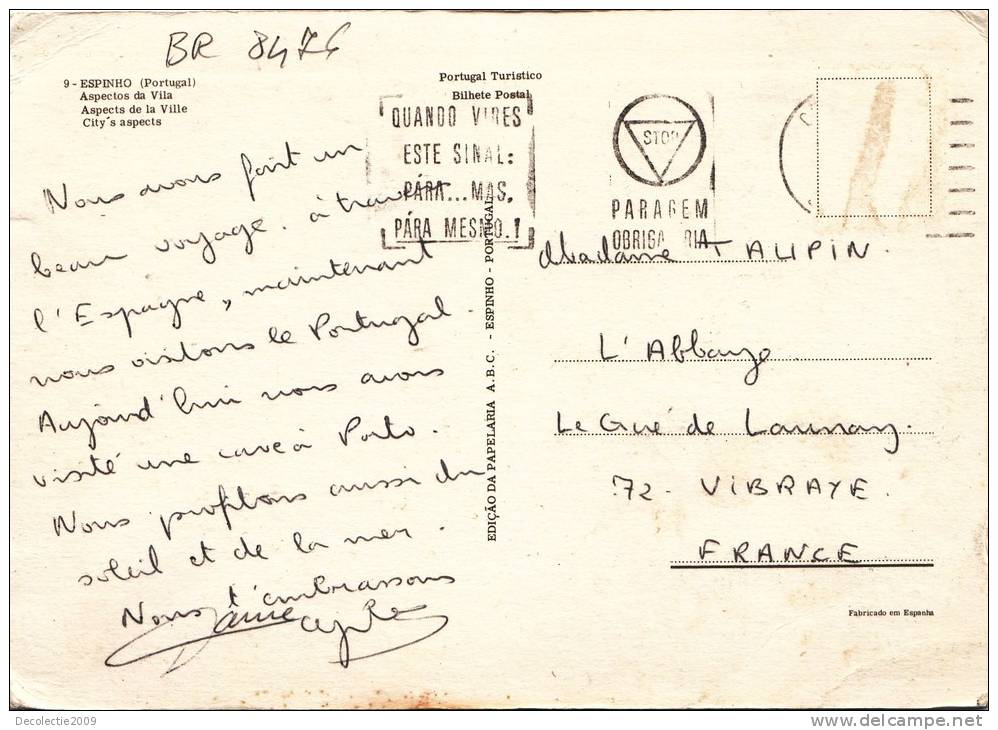 BR 8476
9 - ESPINHO (Portugal)
Aspectos da Vila
Aspects de la Ville
City's aspects
Portugal Turistico
Bilhete Postal
QUANDO VIRES
ESTE SINAL:
PÁRA...MAS,
PÁRA MESMO.!
STOP
PARAGEM
OBRIGA RIA
Nous avons fait un
beau voyage. à travers
l'Espagne, maintenant
nous visitons le Portugal.
Aujourd'hui nous avons
visité une cave à Porto.
Nous profitons aussi du
soleil et de la mer.
Nous t'embrassons
EDIÇÃO DA PAPELARIA A.B.C. - ESPINHO - PORTUGAL
Madame TAUPIN.
L'Abbaye
Le Gué de Launay.
72 - ViBRAYE.
FRANCE
Fabricado em Espanha
Decolectie2009
delcampe.net